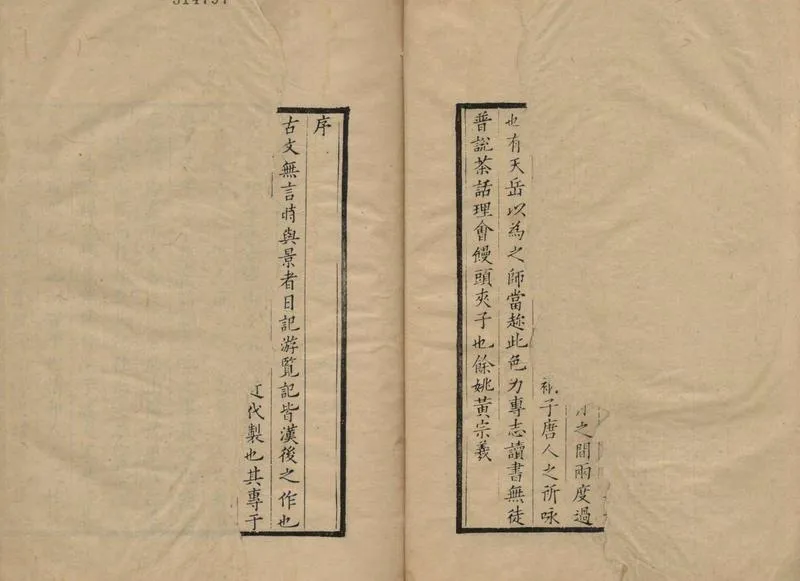 之間兩度過
子唐人之所咏
也有天岳以為之師當趂此色力專志讀書無徒
普說茶話理會饅頭夾子也餘姚黃宗羲
序
古文無言時與景者日記游覽記皆漢後之作也
代製也其專于